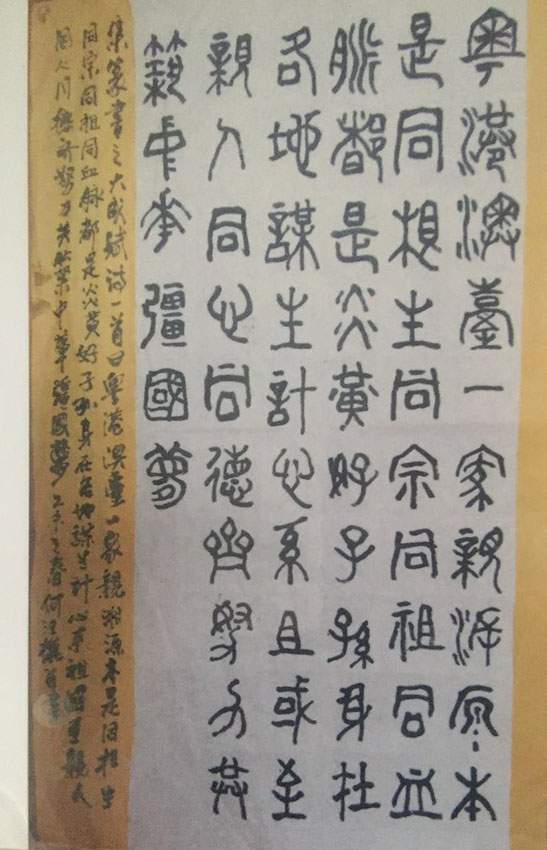 粵港澳臺一家親淵原本
是同根生同宗同祖同血
脈都是炎黃好子孫身在
各地謀生計心系且或至
親人同心同德齊努力共
築中華彊國夢
集篆書之大成賦詩一首曰粤港澳臺一家親淵源本是同根生
同宗同祖同血脈都是炎黃好子孫身在各地謀生計心系祖國至親人
同心同德齊努力共築中華強國夢之春何